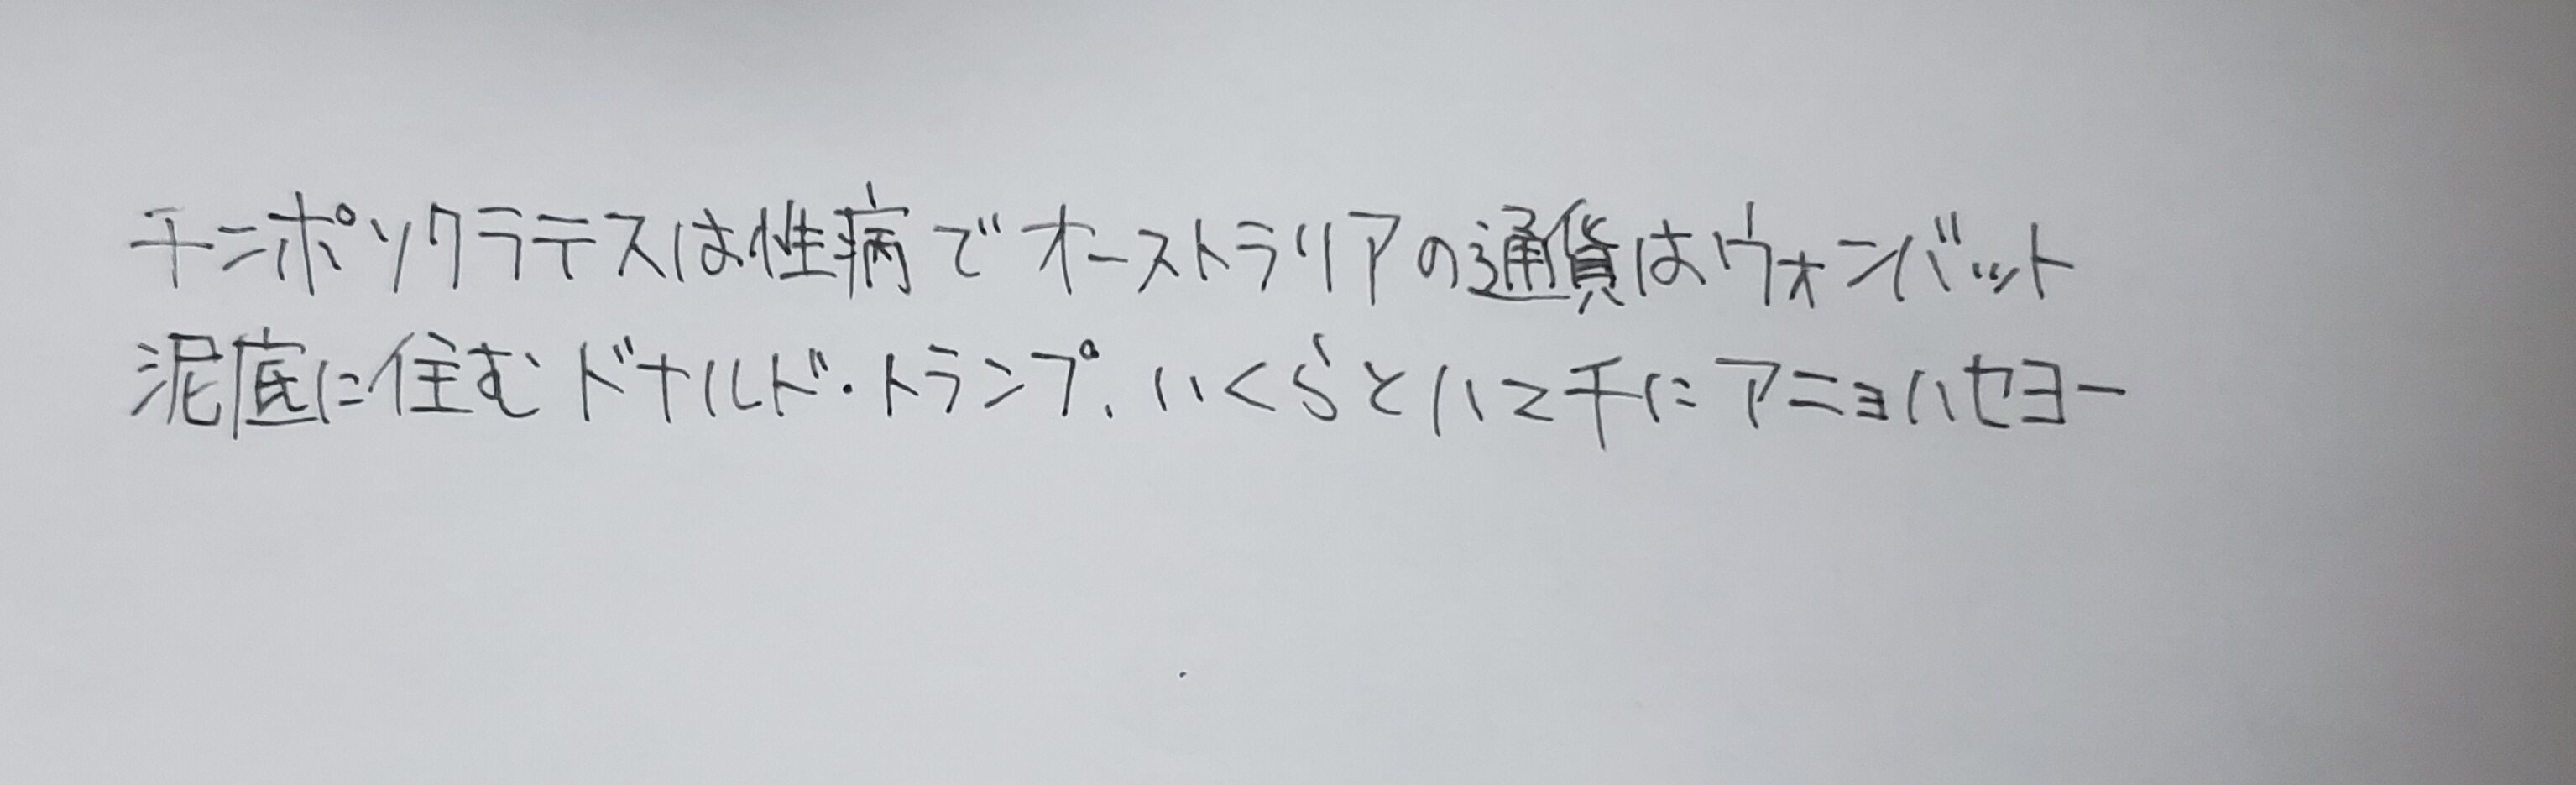 チンポソクラテスは性病でオーストラリアの通貨はウォンバット
泥底に住むドナルド・トランプ、いくらとハマチにアニョハセヨー